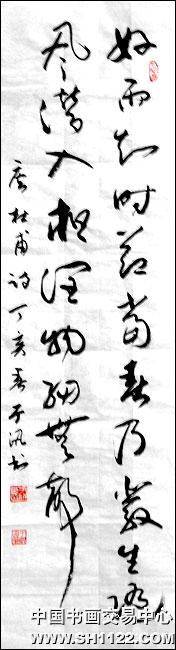 好雨知时节当春乃發生随
风潜入夜润物细無声
唐杜甫诗丁亥春于
中国书画交易中心
www.SH1122.com